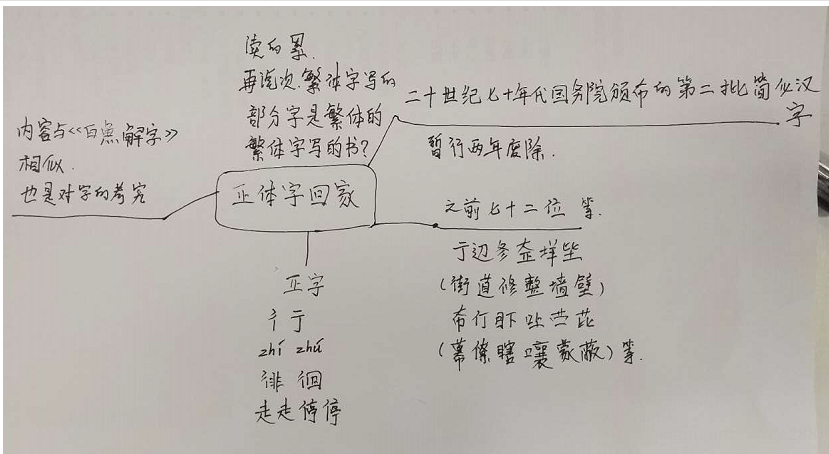 读的累.
再说次.繁体字写的
部分字是繁体的
繁体字写的书?
二十世纪七十年代国务院颁布的第二批简化汉
字
暂行两年废除.
内容与《白鱼解字》
相似.
也是对字的考究
正体字回家
之前七十二位 等.
亍辺
(街道修整墙壁)
(幕 瞎嚷蒙蔽)等.
正字
彳亍
zhí zhú
徘徊
走走停停